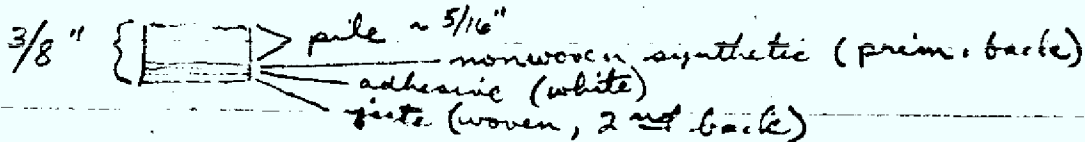 3/8" { pile ~ 5/16"
nonwoven synthetic (prim. back)
adhesive (white)
jute (woven, 2nd back)